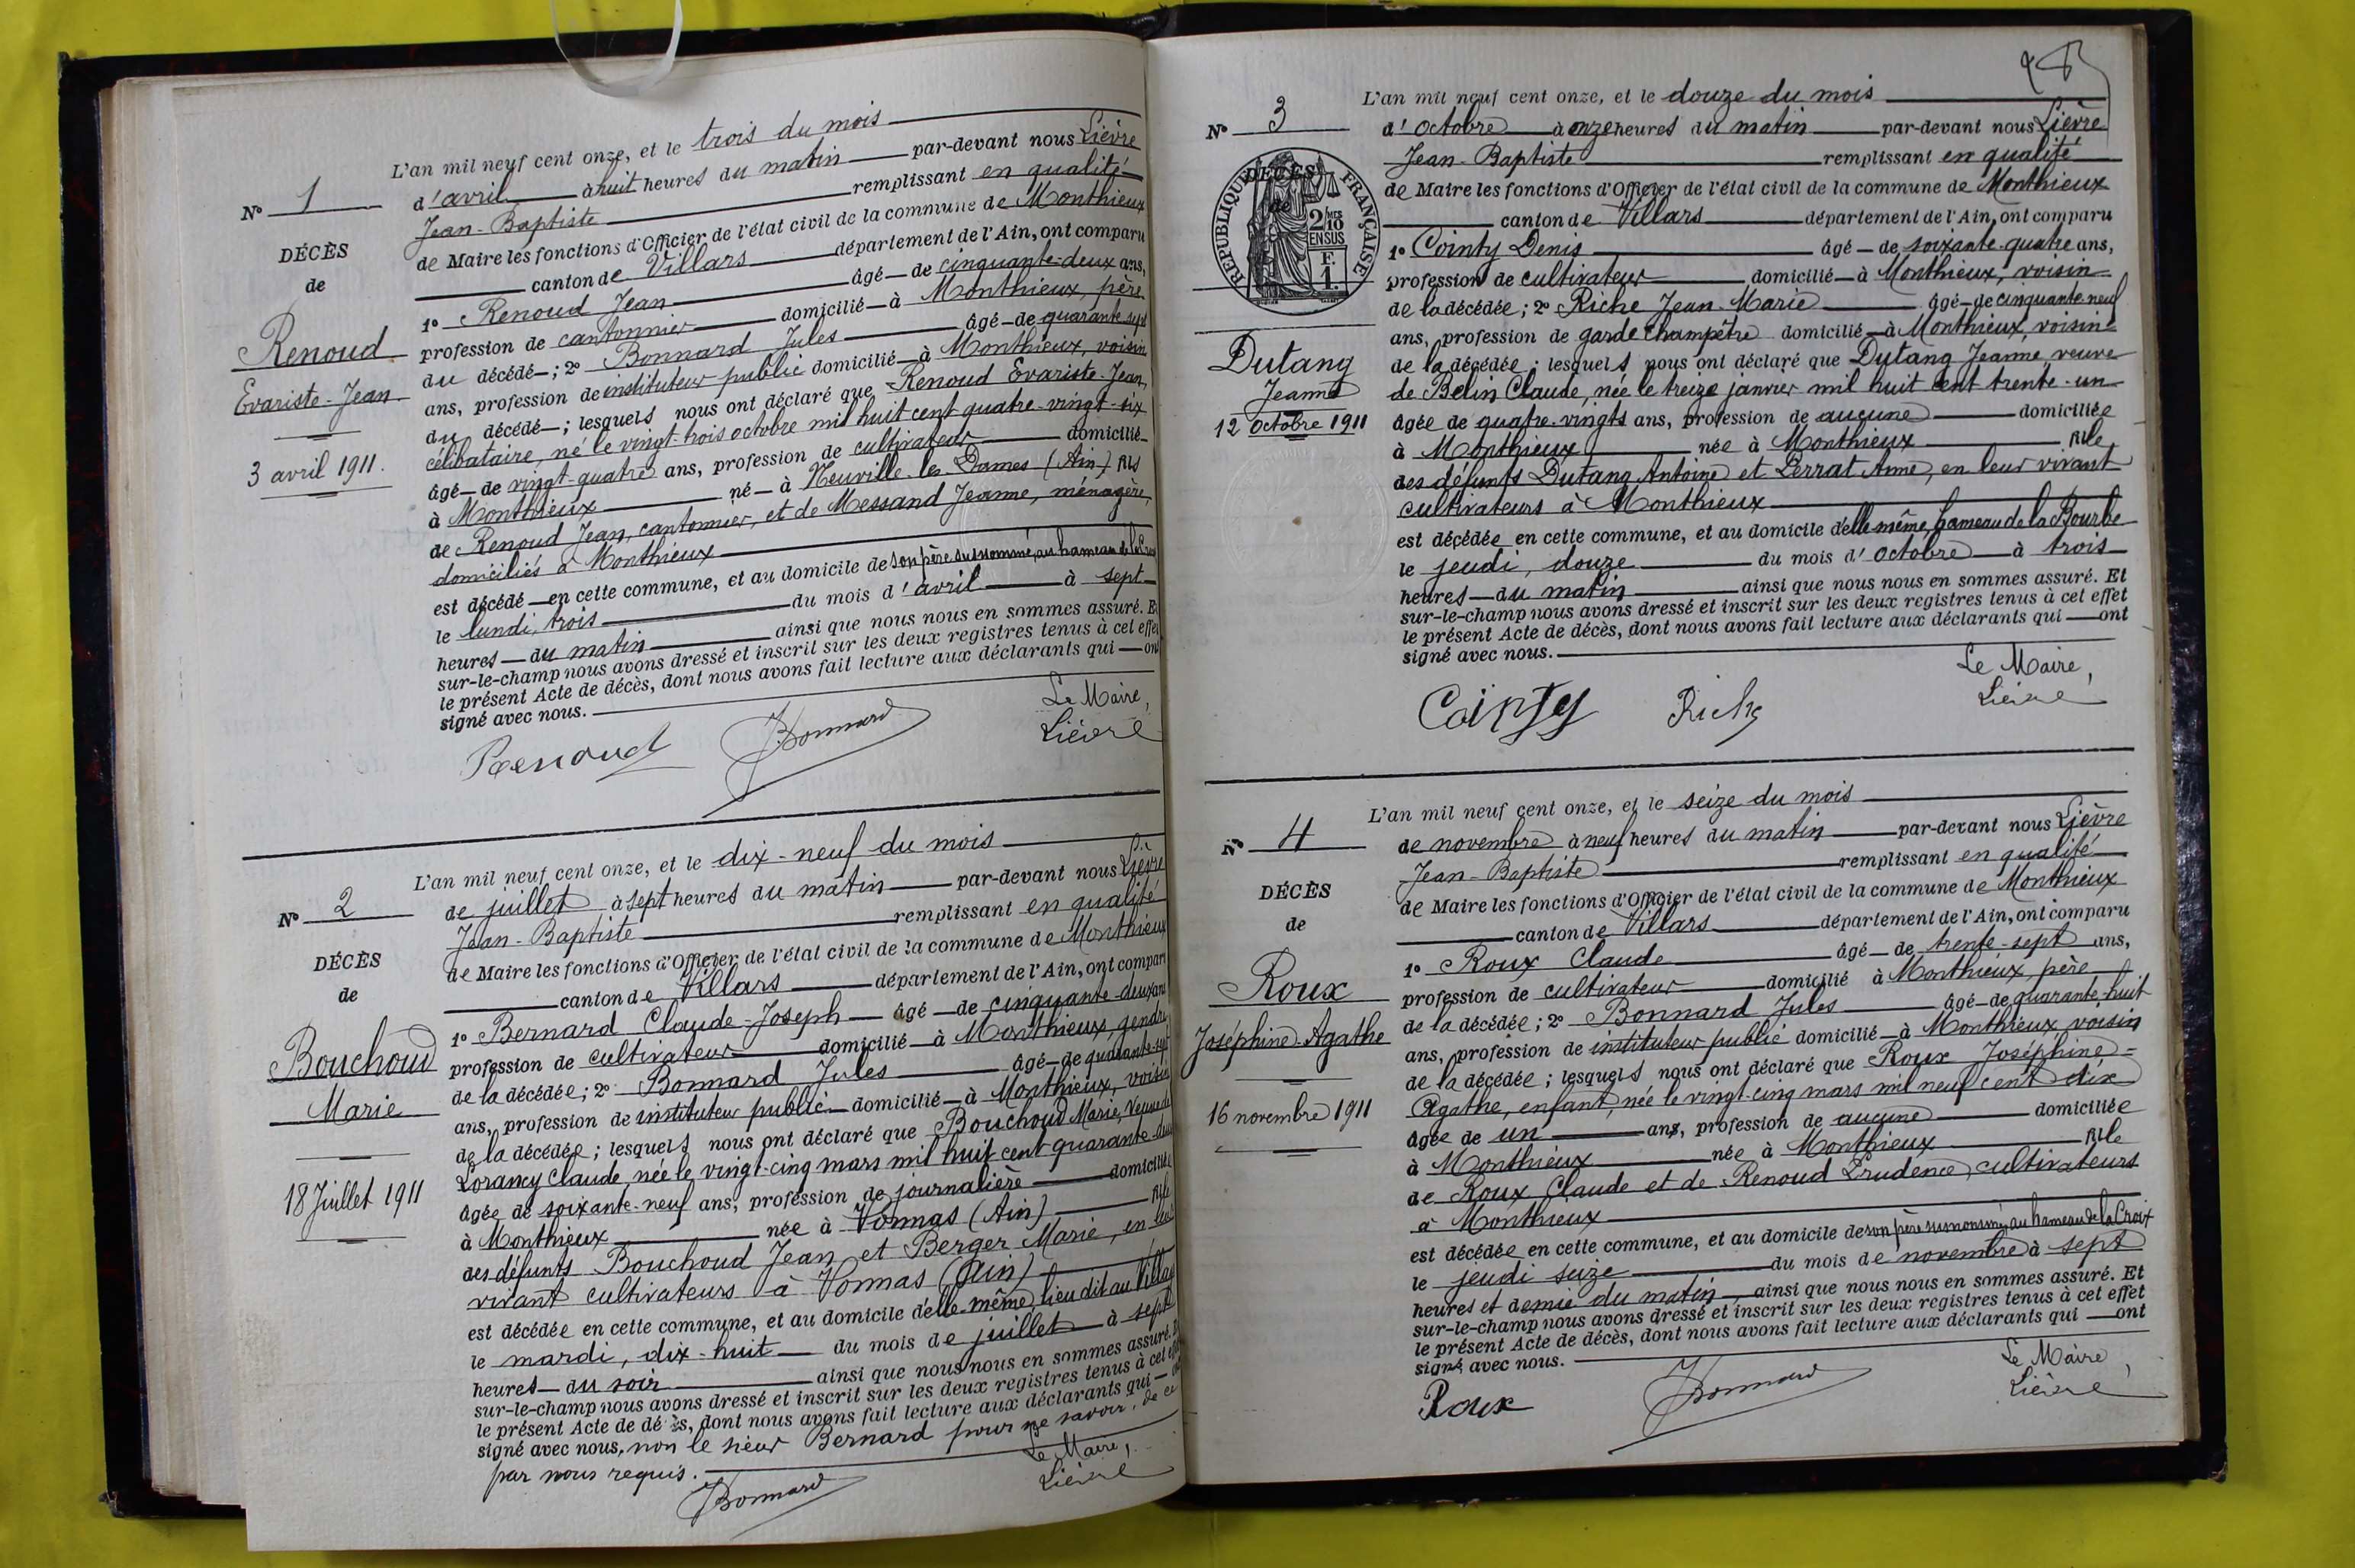 N° 1
DÉCÈS
de
Renoud
Evariste-Jean
3 avril 1911.
L'an mil neuf cent onze, et le trois du mois
d'avril à huit heures du matin par-devant nous Lièvre
Jean-Baptiste remplissant en qualité
de Maire les fonctions d'Officier de l'état civil de la commune de Monthieux
canton de Villars département de l'Ain, ont comparu
1° Renoud Jean âgé de cinquante-deux ans,
profession de cantonnier domicilié à Monthieux, père
du décédé ; 2° Bonnard Jules âgé de quarante-sept
ans, profession de instituteur public domicilié à Monthieux, voisin
du décédé ; lesquels nous ont déclaré que Renoud Evariste-Jean,
célibataire, né le vingt-trois octobre mil huit cent quatre-vingt-six
âgé de vingt-quatre ans, profession de cultivateur domicilié
à Monthieux né à Neuville-les-Dames (Ain) fils
de Renoud Jean, cantonnier, et de Messand Jeanne, ménagère,
domiciliés à Monthieux
est décédé en cette commune, et au domicile de son père susnommé, au hameau de la Croix
le lundi, trois du mois d'avril à sept
heures du matin ainsi que nous nous en sommes assuré. Et
sur-le-champ nous avons dressé et inscrit sur les deux registres tenus à cet effet
le présent Acte de décès, dont nous avons fait lecture aux déclarants qui ont
signé avec nous.
Le Maire,
Renoud JBonnard Lièvre
N° 2
DÉCÈS
de
Bouchoud
Marie
18 Juillet 1911
L'an mil neuf cent onze, et le dix-neuf du mois
de juillet à sept heures du matin par-devant nous Lièvre
Jean-Baptiste remplissant en qualité
de Maire les fonctions d'Officier de l'état civil de la commune de Monthieux
canton de Villars département de l'Ain, ont comparu
1° Bernard Claude-Joseph âgé de cinquante-deux ans
profession de cultivateur domicilié à Monthieux, gendre
de la décédée ; 2° Bonnard Jules âgé de quarante-sept
ans, profession de instituteur public domicilié à Monthieux, voisin
de la décédée ; lesquels nous ont déclaré que Bouchoud Marie, Veuve de
Lorancy Claude, née le vingt-cinq mars mil huit cent quarante-deux
âgée de soixante-neuf ans, profession de journalière domiciliée
à Monthieux née à Vonnas (Ain) fille
des défunts Bouchoud Jean et Berger Marie, en leur
vivant cultivateurs à Vonnas (Ain)
est décédée en cette commune, et au domicile d'elle-même, lieu dit au Village
le mardi, dix-huit du mois de juillet à sept
heures du soir ainsi que nous nous en sommes assuré. Et
sur-le-champ nous avons dressé et inscrit sur les deux registres tenus à cet effet
le présent Acte de décès, dont nous avons fait lecture aux déclarants qui
signé avec nous, non le sieur Bernard pour ne savoir, de ce
par nous requis. Le Maire,
JBonnard Lièvre
N° 3
DÉCÈS
de
RÉPUBLIQUE FRANÇAISE
2/10 MES
EN SUS
F.
1.
Dutang
Jeanne
12 Octobre 1911
L'an mil neuf cent onze, et le douze du mois
d'octobre à onze heures du matin par-devant nous Lièvre
Jean-Baptiste remplissant en qualité
de Maire les fonctions d'Officier de l'état civil de la commune de Monthieux
canton de Villars département de l'Ain, ont comparu
1° Cointy Denis âgé de soixante-quatre ans,
profession de cultivateur domicilié à Monthieux, voisin
de la décédée ; 2° Riche Jean-Marie âgé de cinquante-neuf
ans, profession de garde champêtre domicilié à Monthieux, voisin
de la décédée ; lesquels nous ont déclaré que Dutang Jeanne, veuve
de Belin Claude, née le treize janvier mil huit cent trente-un
âgée de quatre-vingts ans, profession de aucune domiciliée
à Monthieux née à Monthieux fille
des défunts Dutang Antoine et Perrat Anne, en leur vivant
cultivateurs à Monthieux
est décédée en cette commune, et au domicile d'elle même, hameau de la Bourbe
le jeudi, douze du mois d'octobre à trois
heures du matin ainsi que nous nous en sommes assuré. Et
sur-le-champ nous avons dressé et inscrit sur les deux registres tenus à cet effet
le présent Acte de décès, dont nous avons fait lecture aux déclarants qui ont
signé avec nous.
Le Maire,
Cointy Riche Lièvre
N° 4
DÉCÈS
de
Roux
Joséphine-Agathe
16 novembre 1911
L'an mil neuf cent onze, et le seize du mois
de novembre à neuf heures du matin par-devant nous Lièvre
Jean-Baptiste remplissant en qualité
de Maire les fonctions d'Officier de l'état civil de la commune de Monthieux
canton de Villars département de l'Ain, ont comparu
1° Roux Claude âgé de trente-sept ans,
profession de cultivateur domicilié à Monthieux, père
de la décédée ; 2° Bonnard Jules âgé de quarante-huit
ans, profession de instituteur public domicilié à Monthieux, voisin
de la décédée ; lesquels nous ont déclaré que Roux Joséphine=
Agathe, enfant, née le vingt-cinq mars mil neuf cent dix
âgée de un ans, profession de aucune domiciliée
à Monthieux née à Monthieux fille
de Roux Claude et de Renoud Prudence, cultivateurs
à Monthieux
est décédée en cette commune, et au domicile de son père susnommé, au hameau de la Croix
le jeudi seize du mois de novembre à sept
heures et demie du matin, ainsi que nous nous en sommes assuré. Et
sur-le-champ nous avons dressé et inscrit sur les deux registres tenus à cet effet
le présent Acte de décès, dont nous avons fait lecture aux déclarants qui ont
signé avec nous.
Le Maire,
Roux JBonnard Lièvre